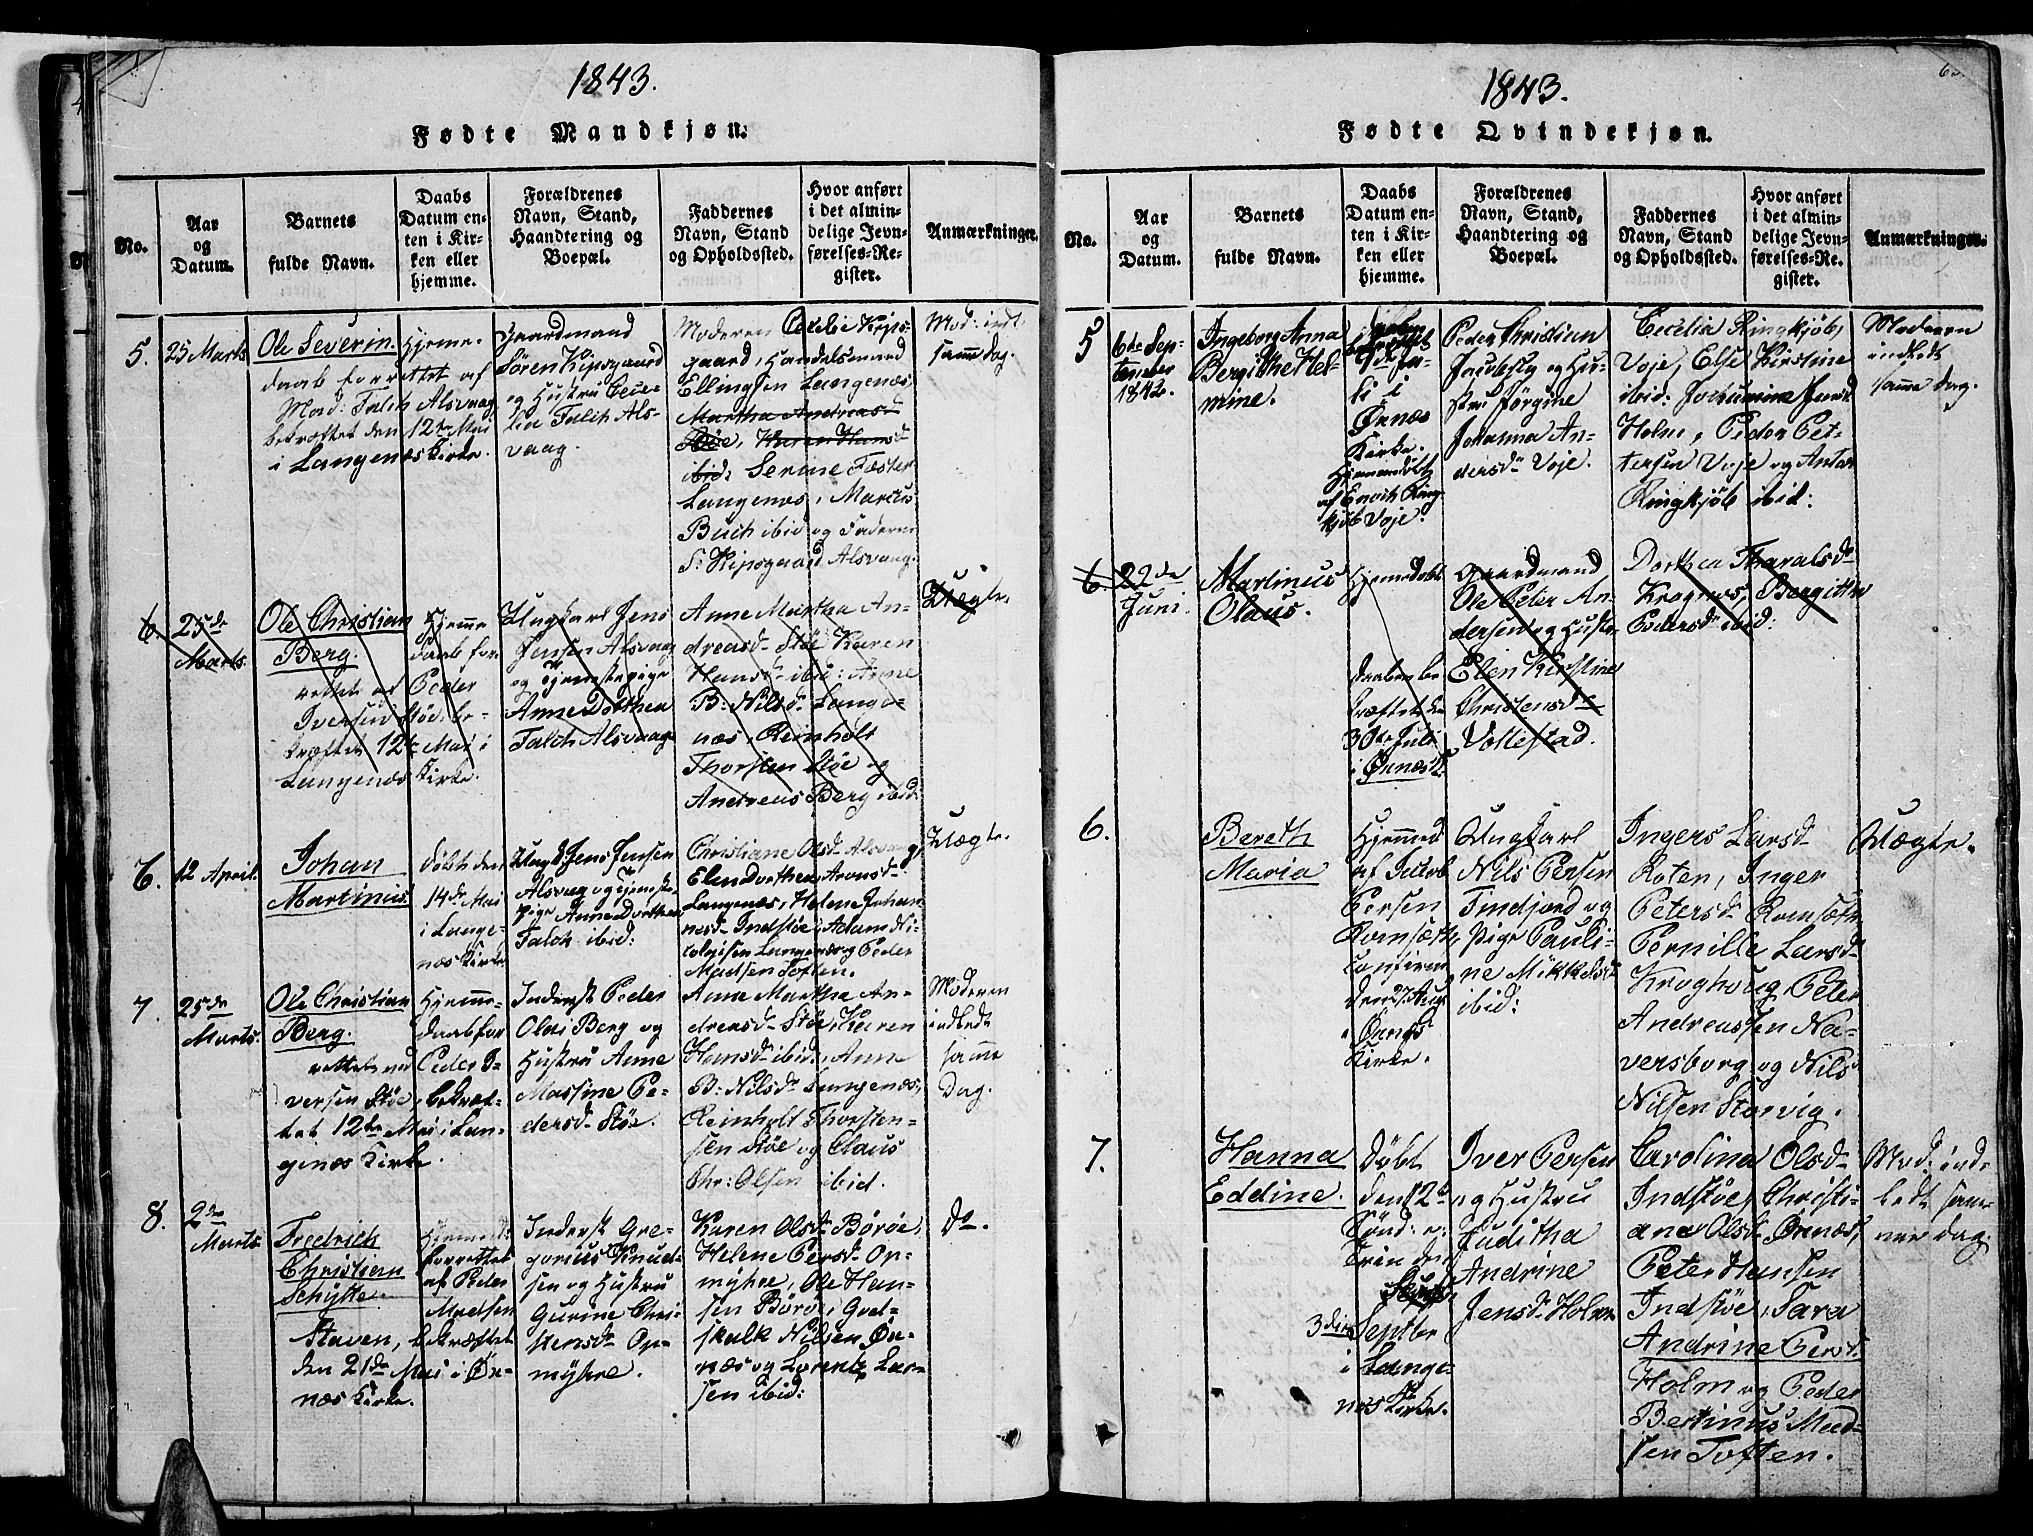 1843.
Fødte Mandkjøn.
No.
Aar
og
Datum.
Barnets
fulde Navn.
Daabs
Datum en-
ten i Kir-
ken eller
hjemme.
Forældrenes
Navn, Stand,
Haandtering og
Boepæl.
Faddernes
Navn, Stand
og Opholdssted.
Hvor anført
i det almin-
delige Jevn-
førelses-Re-
gister.
Anmærkninger.
5.
25 Marts
Ole Severin.
Hjemme-
daab forrettet af
Mad: Falch Alsvaag,
bekræftet den 12te Mai
i Langenæs Kirke.
Gaardmand
Søren Kipsgaard
og Hustru Cece-
lia Falch Als-
vaag.
Moderen Cecelie Kips-
gaard, Handelsmand
Ellingsen Langenæs,
Martha Andreasd
Støe, Karen Hansd
ibid: Serine Foster
Langenæs, Marcus
Buch ibid og Faderen
S: Kipsgaard Alsvaag.
Mod: indl.
samme dag.
6.
25de
Marts.
Ole Christian
Berg.
Hjemme
daab for-
rettet af Peder
Iversen Støe, be-
kræftet 12te Mai i
Langenæs Kirke.
Ungkarl Jens
Jensen Alsvaag
og Tjenestepige
Anne Dorthea
Falch Alsvaag
Anne Martha An-
dreasd. Støe Karen
Hansd. ibid: Anne
B: Nilsd. Lange-
næs, Reinholt
Thorsten Støe og
Andreas Berg ibid:
Uægte.
6.
12 April.
Johan
Martinius.
Døbt den
14de Mai
i Lange-
næs Kirke
Ungk. Jens Jensen
Alsvaag og Tjeneste-
pige Anne Dorthea
Falch ibid:
Christiane Olsd. Alsvaag,
Elen Dorthea Aronsd.
Langenæs, Helene Johan-
nesd. Indstøe, Adam Ni-
colaisen Langenæs og Peder
Madsen Toften.
Uægte.
7.
25de
Marts.
Ole Christian
Berg.
Hjemme-
daab for-
rettet ved Peder I-
versen Støe, bekræf-
tet 12te Mai i Lan-
genæs Kirke.
Inderst Peder
Olai Berg og
Hustru Anne
Massine Pe-
dersd. Støe.
Anne Martha An-
dreasd. Støe, Karen
Hansd. ibid, Anne
B: Nilsd. Langenæs,
Reinholt Thorsten-
sen Støe og Claus
Chr: Olsen ibid.
Moderen
indledt
samme
Dag.
8.
2den
Marts.
Fredrich
Christian
Schytte
Staven, bekræftet
den 21de Mai i Øx-
næs Kirke.
Hjemmed:
forrettet
af Peder
Madsen
Inderst Gre-
gorius Knud-
sen og Hustru
Gurine Chri-
stensd. Op-
myhre.
Karen Olsd. Børøe,
Helene Persd. Op-
myhre, Ole Han-
sen Børøe, Godt-
skalk Nilsen Øx-
næs og Lorentz Lar-
sen ibid:
do.
1843.
Fødte Qvindekjøn.
No.
Aar
og
Datum.
Barnets
fulde Navn.
Daabs
Datum en-
ten i Kir-
ken eller
hjemme.
Forældrenes
Navn, Stand,
Haandtering og
Boepæl.
Faddernes
Navn, Stand
og Opholdssted.
Hvor anført
i det almin-
delige Jevn-
førelses-Re-
gister.
Anmærkninger.
5
6te Sep-
tember
1842.
Ingeborg Anna
Bergithe Hel-
mine.
Øxnæs
Kirke.
Hjemmedøbt
af Enoch Ring-
kjøb Voje.
Peder Christian
Jacobsen og Hu-
stru Jørgine
Johanna An-
dersd. Voje.
Cecelia Ringkjøb,
Voje, Else Kirstine
ibid: Jochumine Jensd.
Holm, Peder Pet-
tersen Voje og Anton
Ringkjøb ibid:
Moderen
indledt
samme dag.
6.
22de
Juni.
Martinus
Olaus.
Hjemmedøbt
daaben be-
kræftet den
30te Juli
i Øxnæs K
Gaardmand
Ole Peter An-
dersen og Hustr.
Elen Kirstine
Christensd.
Vottestad.
Dorthea Tharalsd.
Kragnes, Bergitte
Pedersd. ibid:
6.
Bereth
Maria
Hjemmed
af Jacob
Persen
Romsæth,
confirm
den 27 Aug
i Øxnæs
Kirke.
Ungkarl
Nils Persen
Tindjord og
Pige Pauli-
ne Mikkelsd.
ibid:
Ingers Larsd.
Roten, Inger
Petersd. Romsæth
Pernille Larsd.
Kroghoug, Peter
Andreassen Na-
versborg og Nils
Nilsen Storvig.
Uægte.
7.
Hanna
Eddine.
Døbt
den 12te
Sønd: e:
Trin den
3die Septbr
i Lange-
næs Kirke.
Iver Persen
og Hustru
Juditha
Andrine
Jensd. Holm
Carolina Olsd.
Indstøe, Christi-
ane Olsd. Øxnæs,
Peter Hansen
Indstøe, Sara
Andrine Persd.
Holm og Peder
Bertinus Mad-
sen Toften.
Mod: ind-
ledt sam-
me dag.